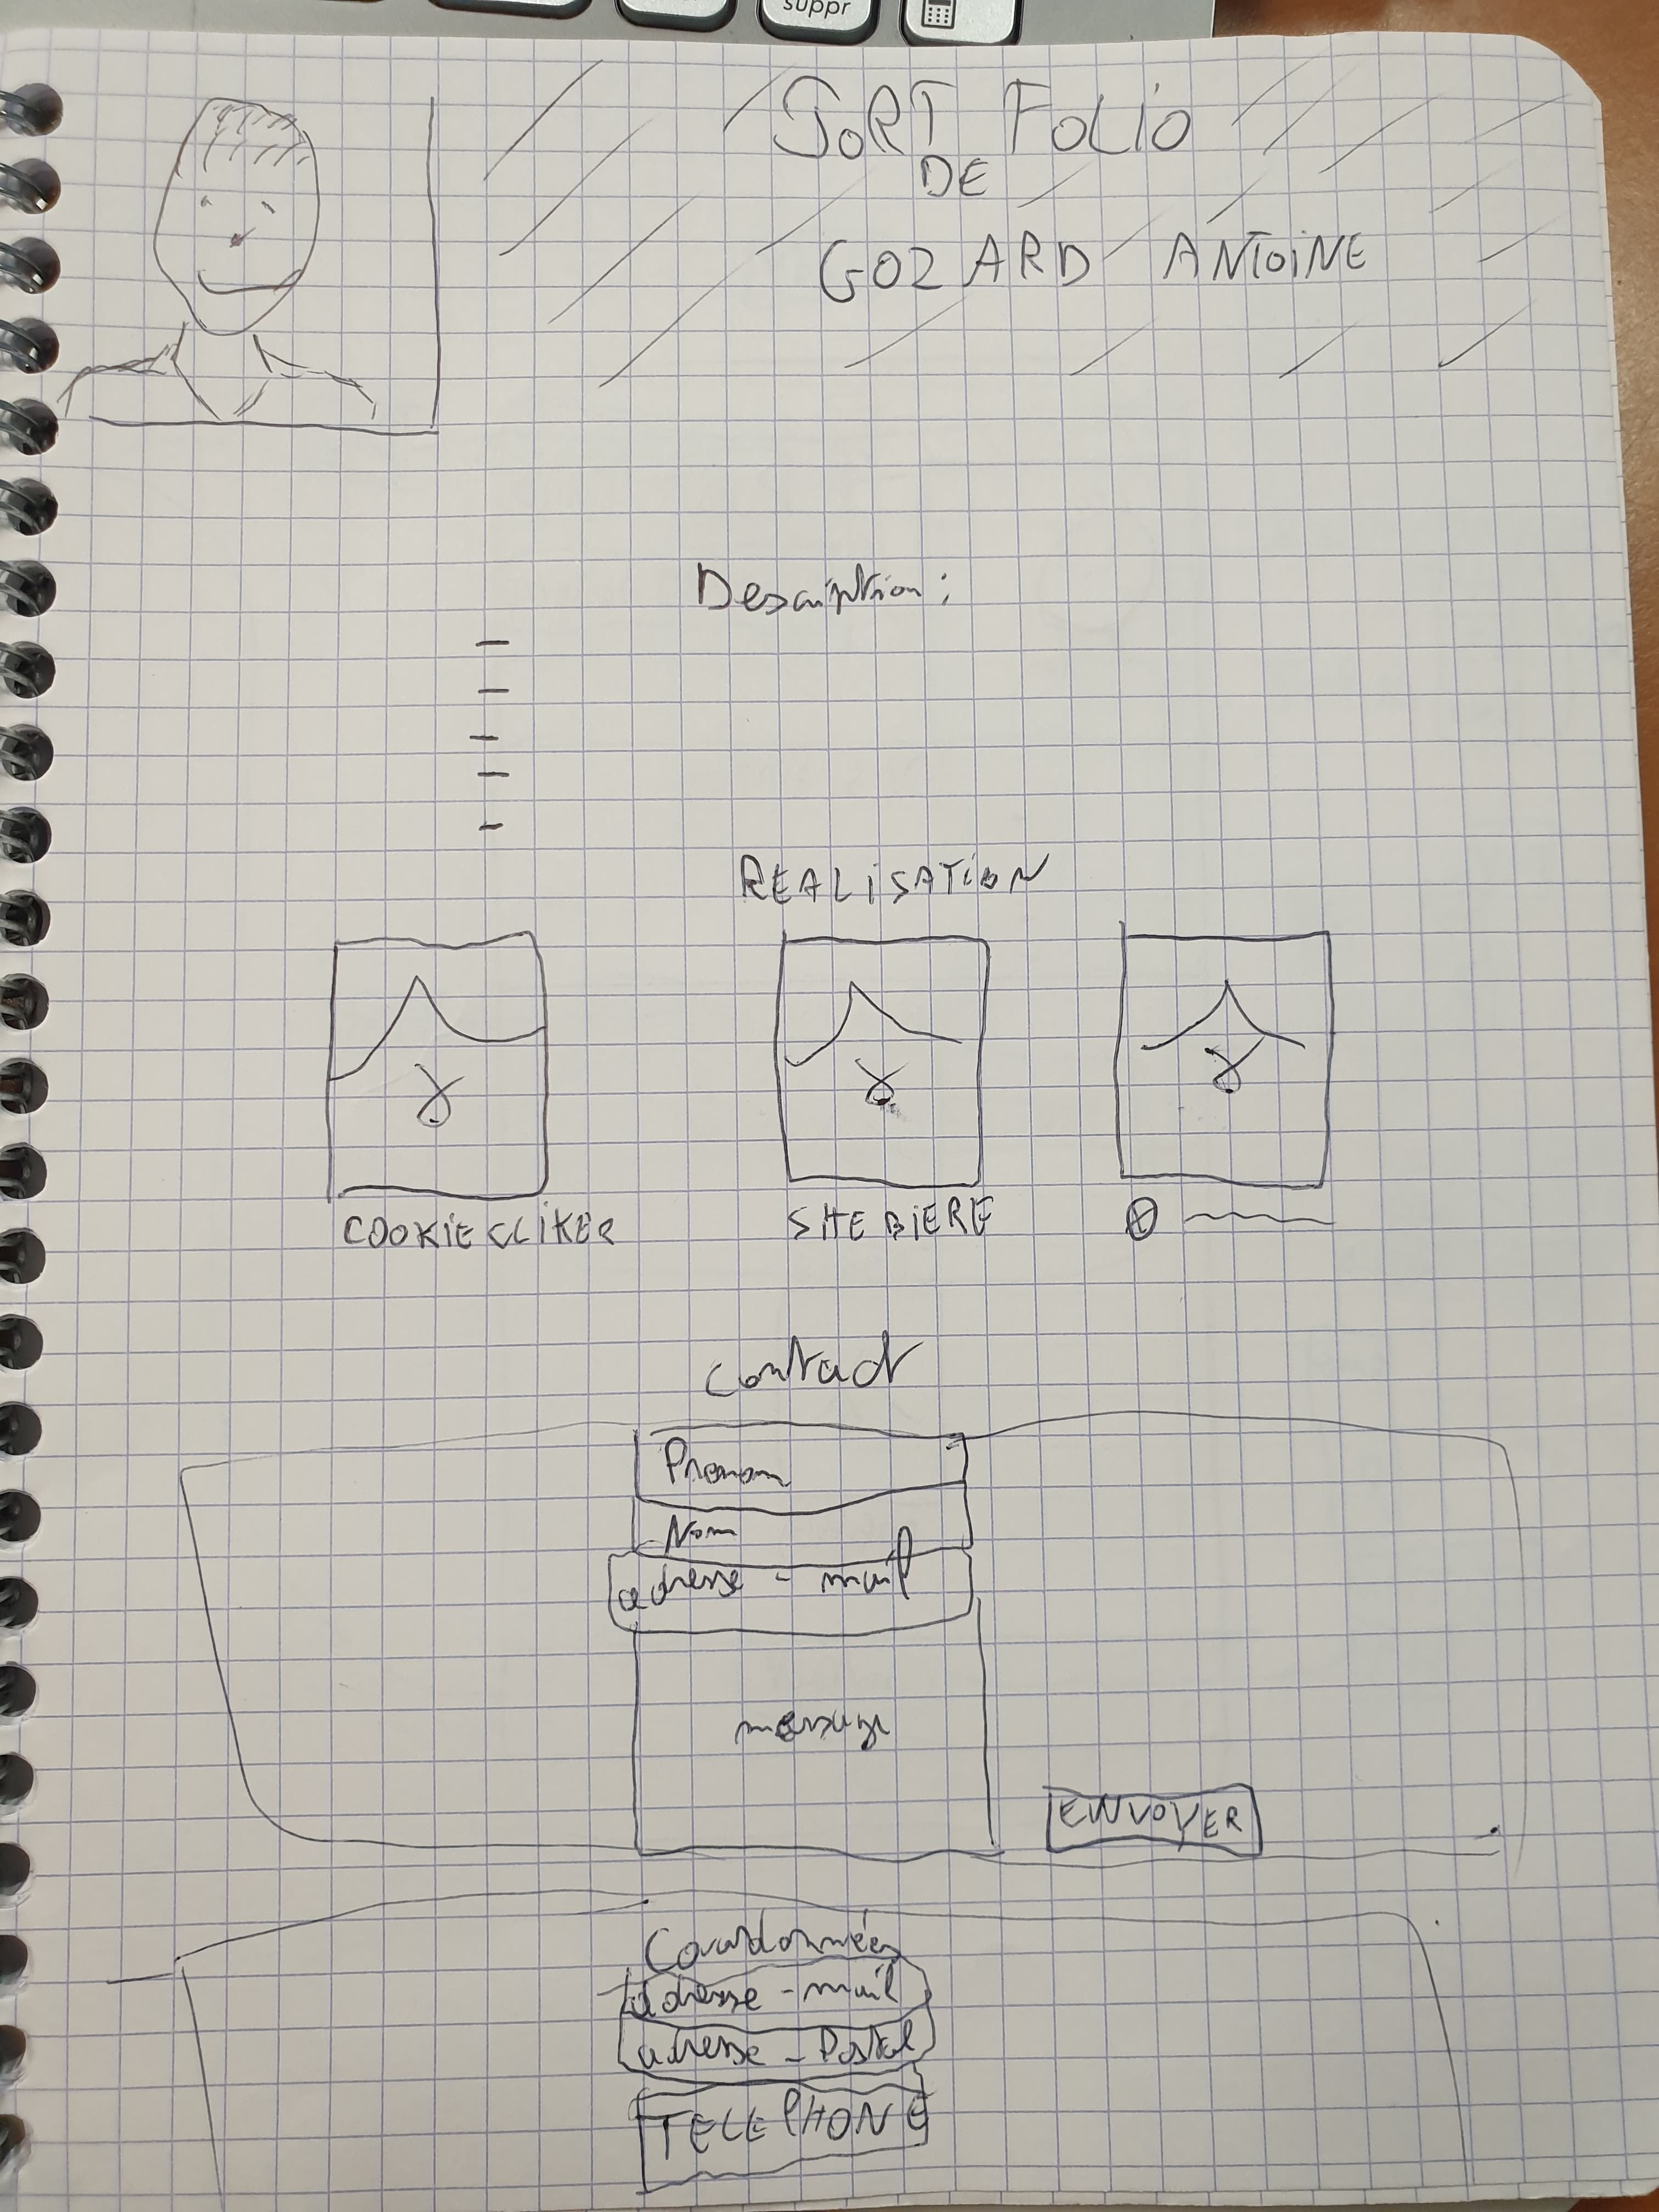 suppr
PORT FOLIO
DE
GOZARD ANTOINE
Description :
REALISATION
COOKIE CLIKER
SITE BIERE
Contact
Prenom
Nom
adresse - mail
message
ENVOYER
Courdonnées
adresse - mail
adresse - Postal
TELEPHONE